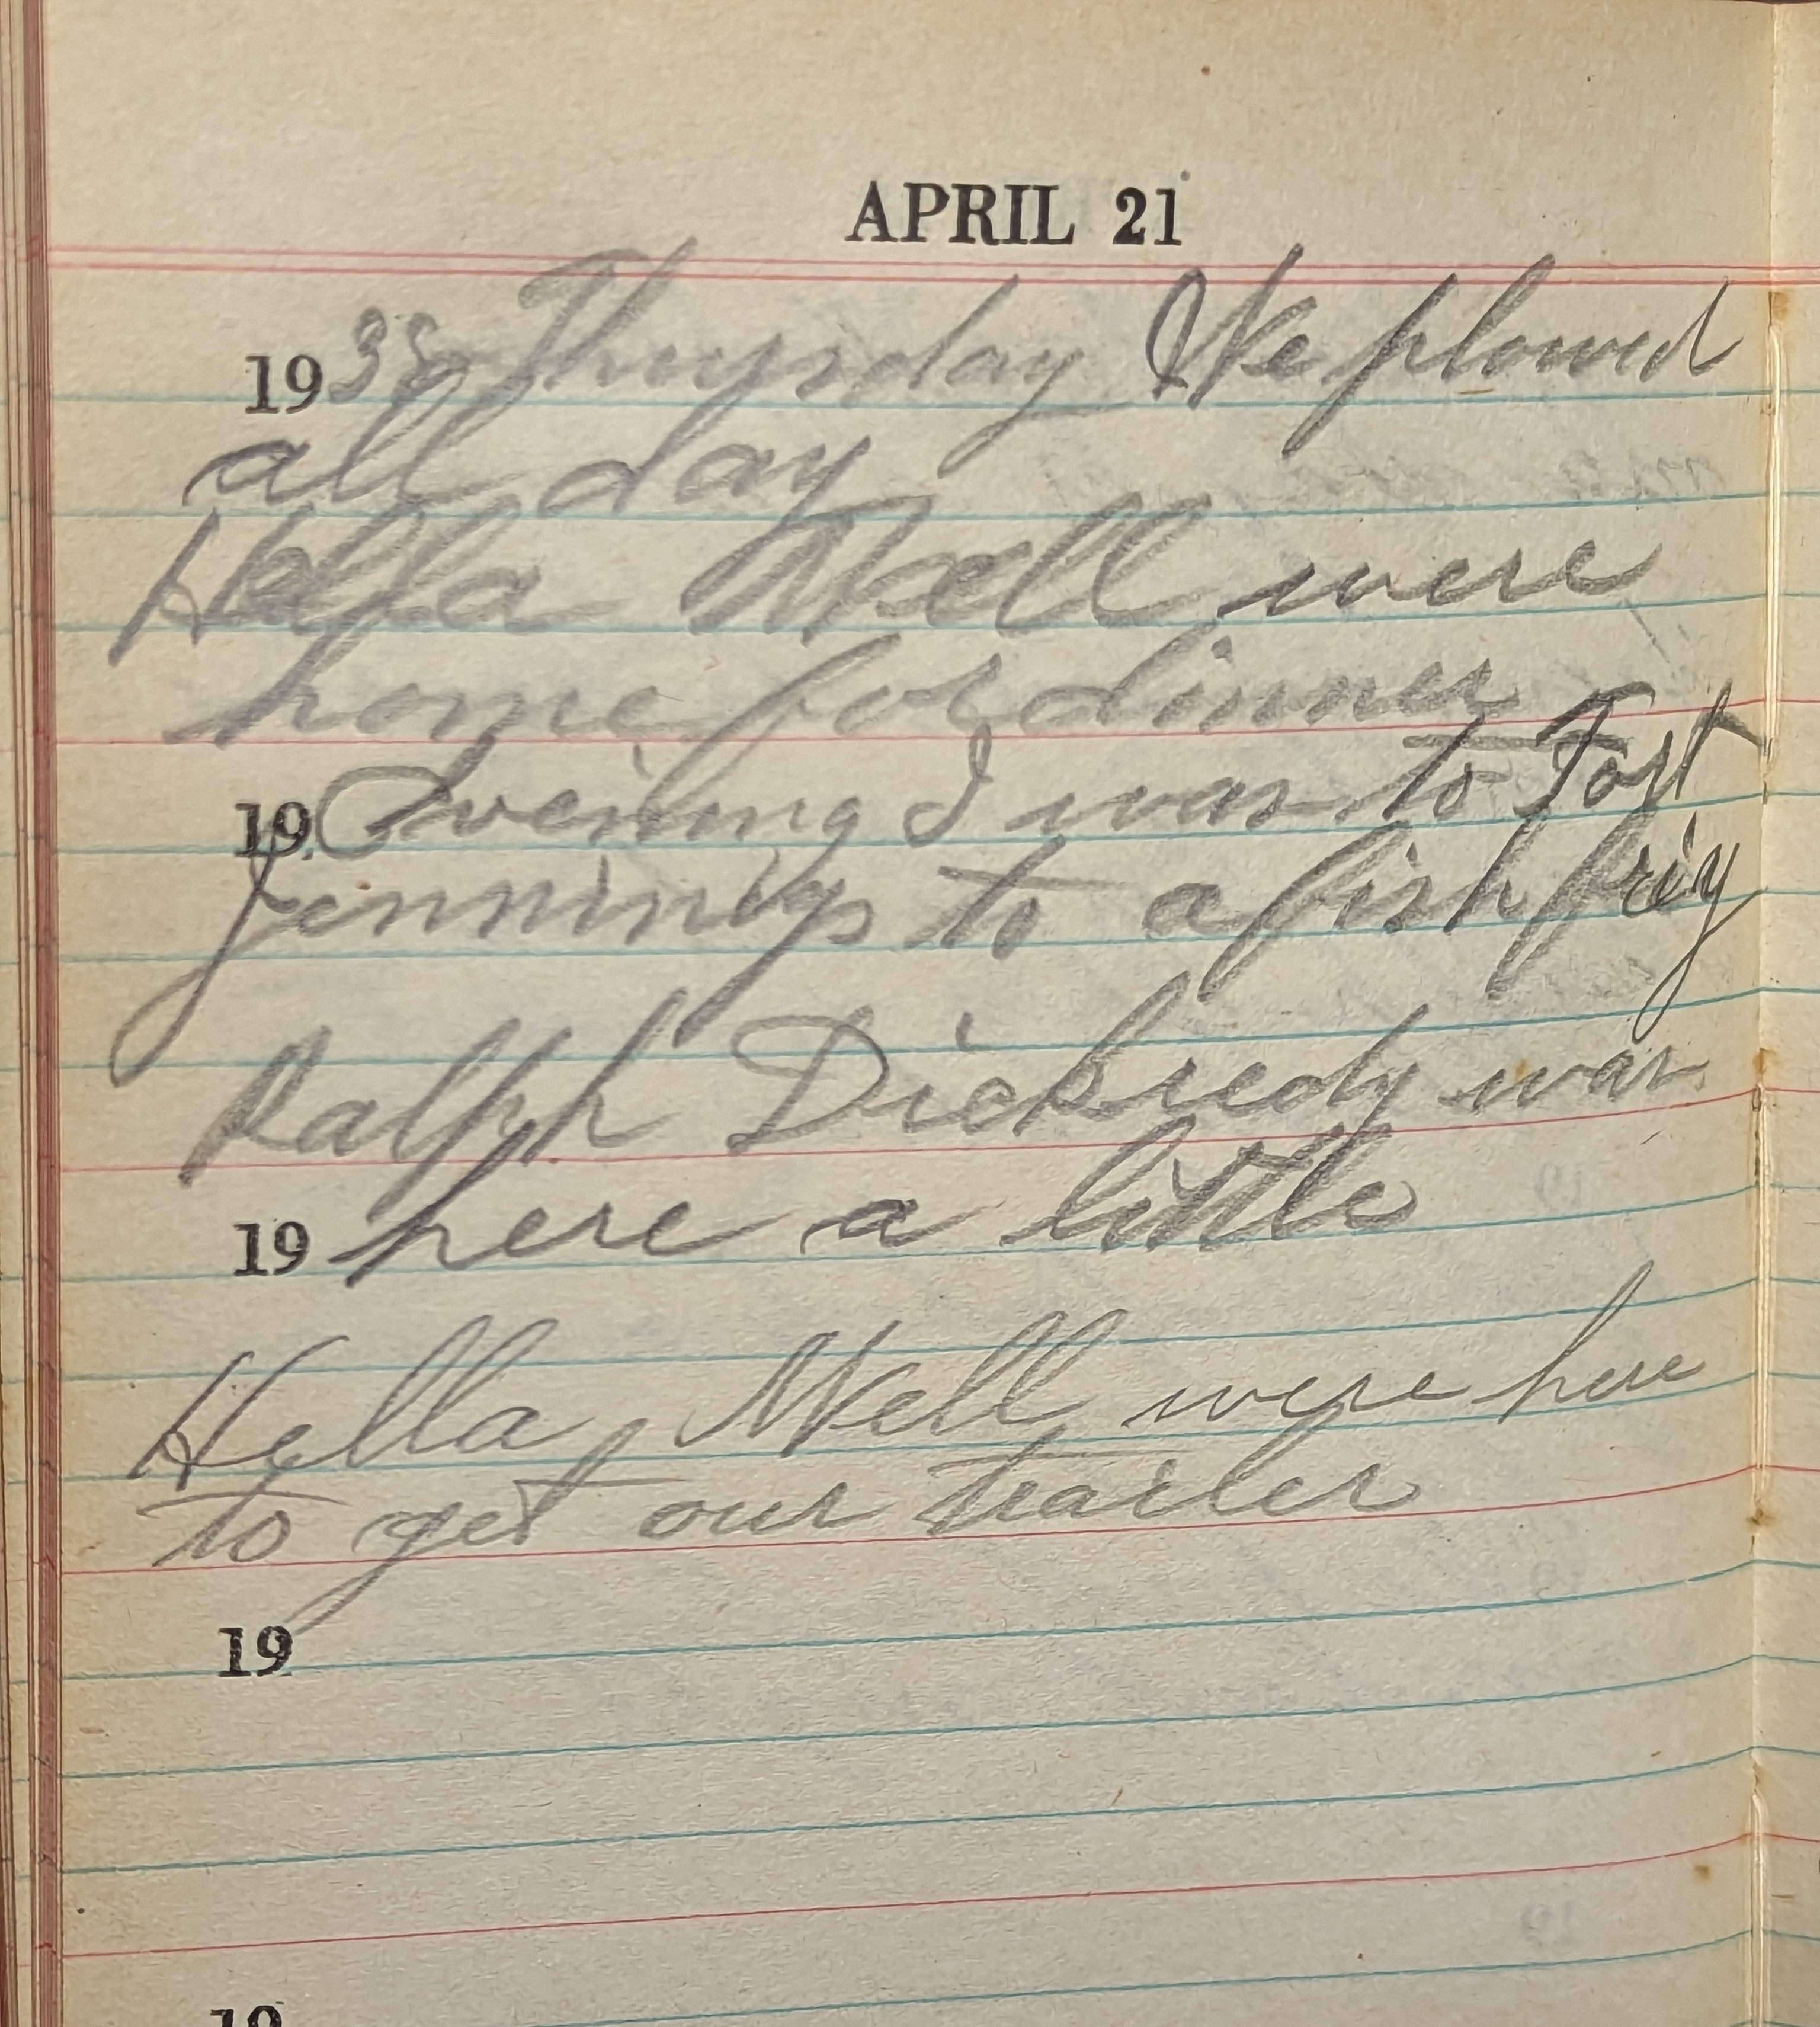 APRIL 21
1938 Thursday We plowed
all day
Hella Mell were
home for dinner
19 Evening I was to Fort
Jennings to a fish friy
Ralph Dickredy was
19 here a little
Hella, Mell were here
to get our trailer
19
19